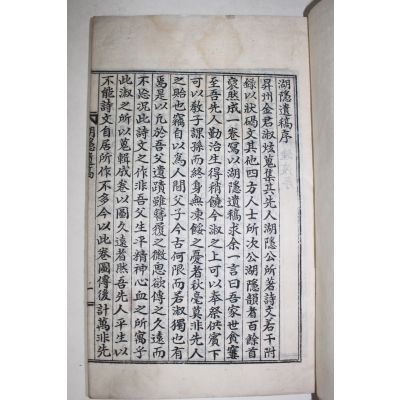 湖隱遺稿序
昇州金君淑炫蒐集其先人湖隱公所著詩文若干附
錄以狀碣文其他四方人士所次公湖隱韻者百餘首
裒然成一卷寫以湖隱遺稿求余一言曰吾家世食窶
至吾先人勤治生得稍饒今淑之上可以奉祭供賓下
可以教子課孫而終身無凍餒之憂者秋毫莫非先人
之貽也竊自以爲人間父子今古何限而若淑獨也有
焉是以凡於吾父遺蹟雖簪履之微思欲傳之久遠而
不泯况此詩文之作非吾父生平精神心血之所寓乎
此淑之所以蒐輯成卷以圖久遠者然吾先人平生以
不能詩文自居所作不多今以此卷圖傳後計萬非先
湖隱遺稿
一